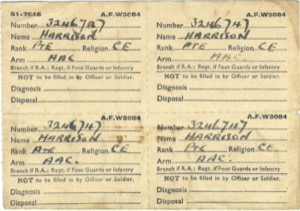 51-7646 A.F.W3084
Number 3246747
Name HARRISON
Rank PTE Religion CE
Arm AAC.
Branch if R.A.; Regt. if Foot Guards or Infantry
NOT to be filled in by Officer or Soldier.
Diagnosis
Disposal
A.F.W3084
Number 3246747
Name HARRISON
Rank PTE Religion CE
Arm AAC.
Branch if R.A.; Regt. if Foot Guards or Infantry
NOT to be filled in by Officer or Soldier.
Diagnosis
Disposal
A.F.W3084
Number 3246747
Name HARRISON
Rank PTE Religion CE
Arm AAC.
Branch if R.A.; Regt. if Foot Guards or Infantry
NOT to be filled in by Officer or Soldier.
Diagnosis
Disposal
A.F.W3084
Number 3246747
Name HARRISON
Rank PTE Religion CE
Arm AAC.
Branch if R.A.; Regt. if Foot Guards or Infantry
NOT to be filled in by Officer or Soldier.
Diagnosis
Disposal